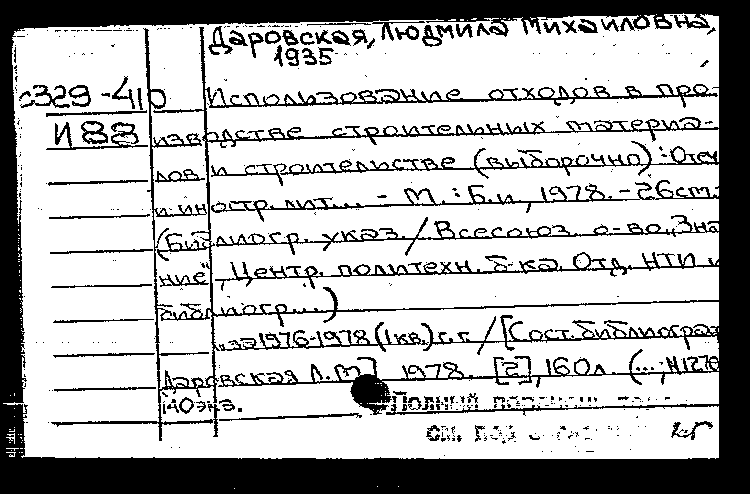 Даровская, Людмила Михайловна,
1935
с329-410 Использование отходов в про-
И 88 изводстве строительных материа-
лов и строительстве (выборочно): Отеч
и иностр. лит... - М.: Б.и, 1978. - 26 см.
(Библиогр. указ. / Всесоюз. о-во „Зна
ние", Центр. политехн. б-ка. Отд. НТИ и
библиогр...)
...за 1976-1978 (I кв.) г.г. / [Сост. библиограф
Даровская Л.М.] 1978. [2], 160 л. (...; N1270
140 экз.
Полный перечень
см. под